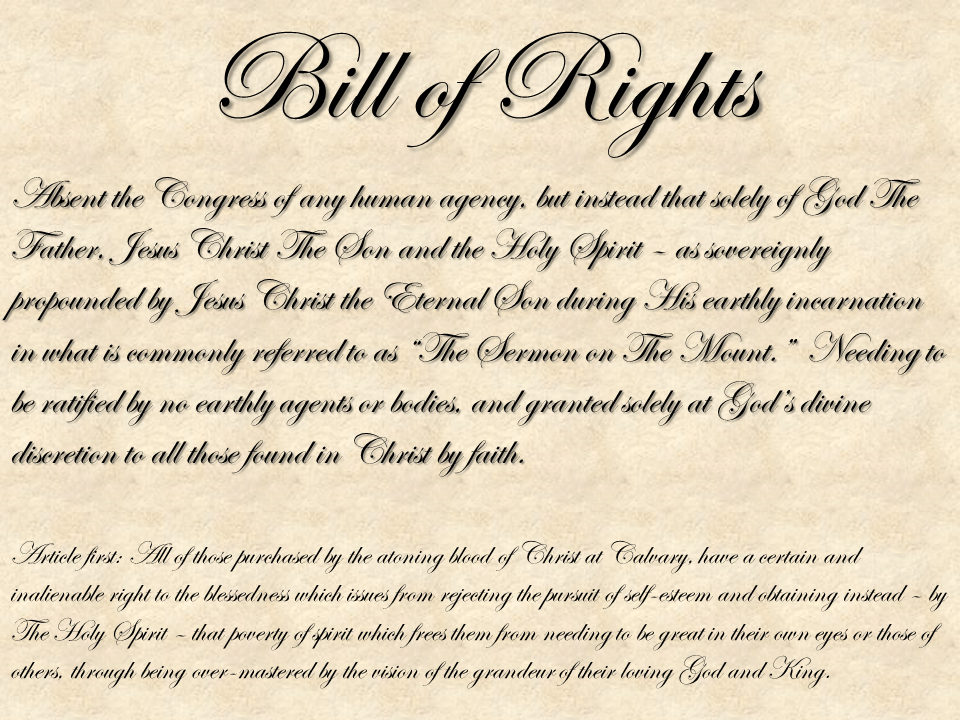 Bill of Rights
Absent the Congress of any human agency, but instead that solely of God The
Father, Jesus Christ The Son and the Holy Spirit – as sovereignly
propounded by Jesus Christ the Eternal Son during His earthly incarnation
in what is commonly referred to as “The Sermon on The Mount.” Needing to
be ratified by no earthly agents or bodies, and granted solely at God’s divine
discretion to all those found in Christ by faith.
Article first: All of those purchased by the atoning blood of Christ at Calvary, have a certain and
inalienable right to the blessedness which issues from rejecting the pursuit of self-esteem and obtaining instead – by
The Holy Spirit – that poverty of spirit which frees them from needing to be great in their own eyes or those of
others, through being over-mastered by the vision of the grandeur of their loving God and King.